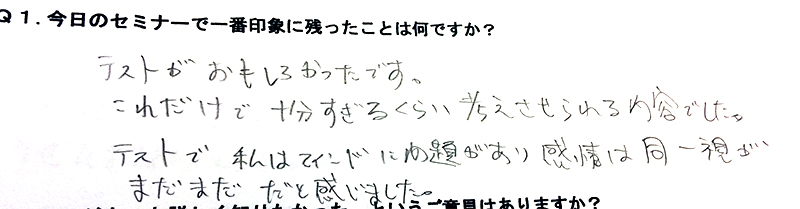 Q1.今日のセミナーで一番印象に残ったことは何ですか?
テストがおもしろかったです。
これだけで十分すぎるくらい考えさせられる内容でした。
テストで私はマインドに問題があり感情は同一視が
まだまだだと感じました。
というご意見はありますか?